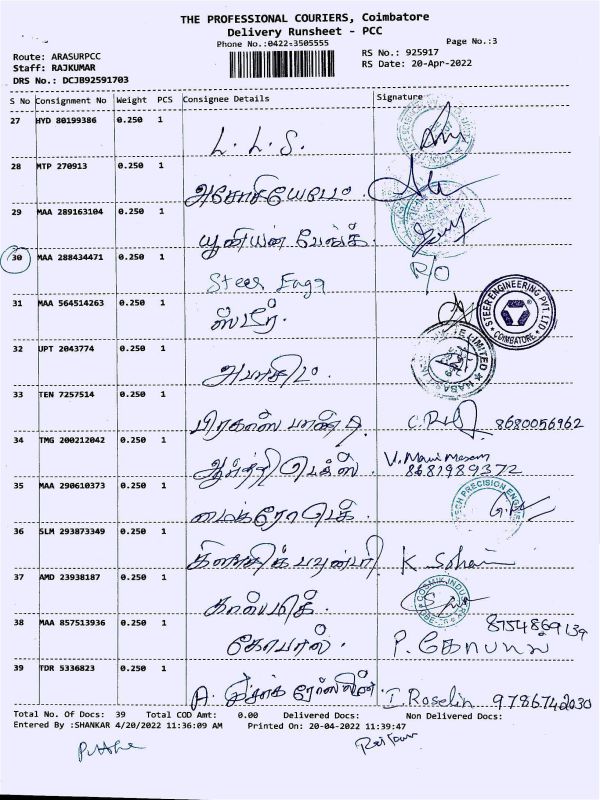 THE PROFESSIONAL COURIERS, Coimbatore
Delivery Runsheet - PCC
Phone No.:0422-3505555
Page No.:3
Route: ARASURPCC
Staff: RAJKUMAR
DRS No.: DCJB92591703
RS No.: 925917
RS Date: 20-Apr-2022
S No Consignment No Weight PCS Consignee Details Signature
27 HYD 80199386 0.250 1
L. L. S.
28 MTP 270913 0.250 1
29 MAA 289163104 0.250 1
யூனியன் பேங்க்.
30 MAA 288434471 0.250 1 R/O
Steer Engg
31 MAA 564514263 0.250 1
ஸ்டீர். STEER ENGINEERING PVT. LTD COIMBATORE
32 UPT 2043774 0.250 1
LIMITED
33 TEN 7257514 0.250 1
8680056962
34 TMG 200212042 0.250 1
8681989372
35 MAA 290610373 0.250 1
மைக்ரோ டெக். TECH PRECISION
36 SLM 293873349 0.250 1
37 AMD 23938187 0.250 1
காஸ்மிக். COSMIK INDU
38 MAA 857513936 0.250 1 8754869139
கோபால். P. கோபால்
39 TDR 5336823 0.250 1
I. Roselin 9786742030
Total No. Of Docs: 39 Total COD Amt: 0.00 Delivered Docs: Non Delivered Docs:
Entered By :SHANKAR 4/20/2022 11:36:09 AM Printed On: 20-04-2022 11:39:47